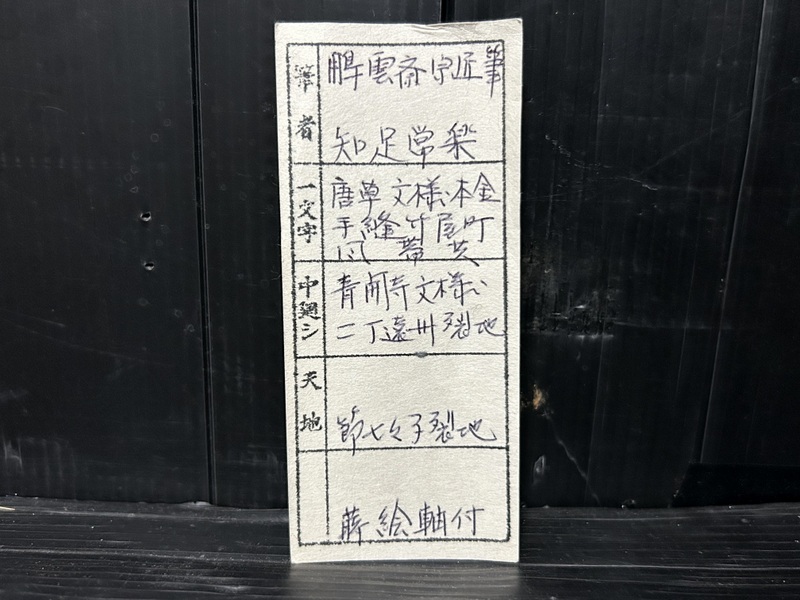 筆者
鵬雲斎宗匠筆
知足常楽
一文字
唐草文様本金
手縫竹屋町
風帯共
中廻シ
青海波文様
二丁遠州裂地
天地
節七々子裂地
蒔絵軸付